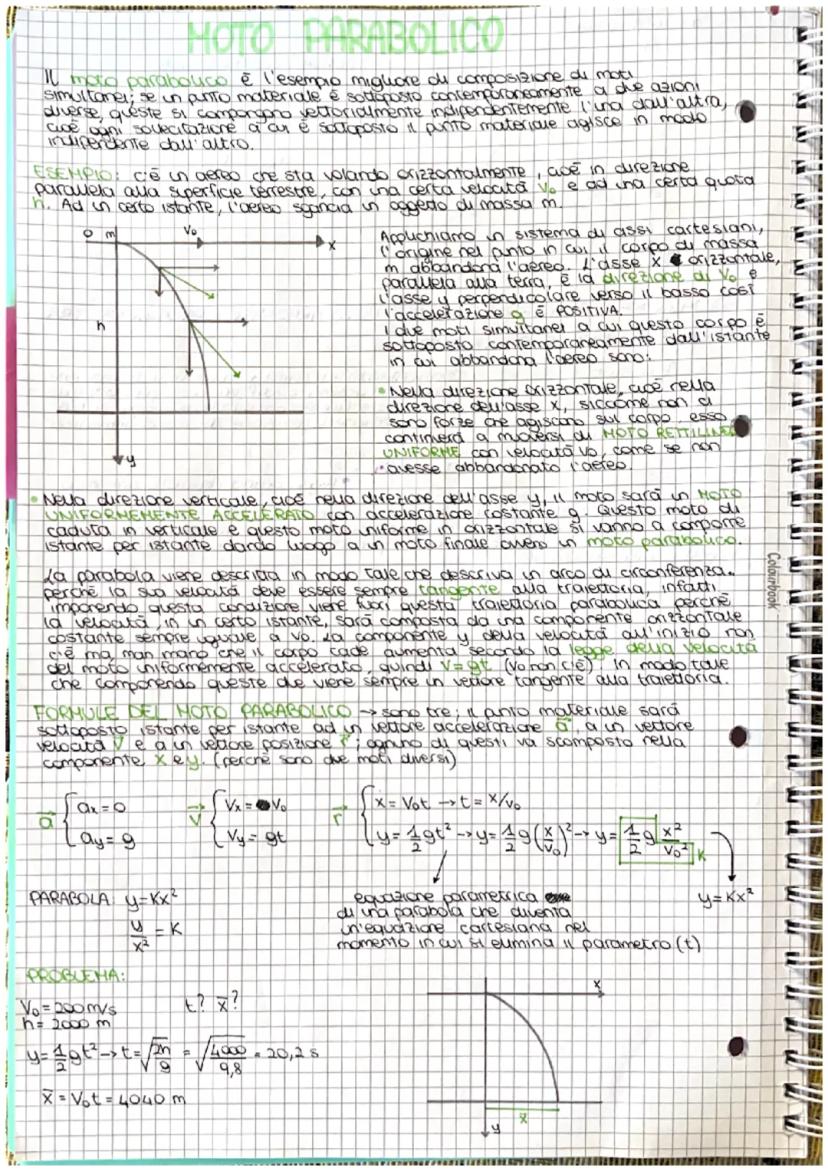 MOTO PARABOLICO
Il moto parabolico è l'esempio migliore di composizione di moti
simultanei; se un punto materiale è sottoposto contemporaneamente a due azioni
diverse, queste si compongono vettorialmente indipendentemente l'una dall'altra,
cioè ogni sollecitazione a cui è sottoposto il punto materiale agisce in modo
indipendente dall'altro.
ESEMPIO: c'è un aereo che sta volando orizzontalmente, cioè in direzione
parallela alla superficie terrestre, con una certa velocità V₀ e ad una certa quota
h. Ad un certo istante, l'aereo sgancia un oggetto di massa m.
O m V₀ x
h
y
Applichiamo un sistema di assi cartesiani,
l'origine nel punto in cui il corpo di massa
m abbandona l'aereo. L'asse x orizzontale,
parallela alla terra, è la direzione di V₀ e
l'asse y perpendicolare verso il basso così
l'accelerazione g è POSITIVA.
I due moti simultanei a cui questo corpo è
sottoposto contemporaneamente dall'istante
in cui abbandona l'aereo sono:
• Nella direzione orizzontale, cioè nella
direzione dell'asse x, siccome non ci
sono forze che agiscano sul corpo, esso
continuerà a muoversi di MOTO RETTILINEO
UNIFORME con velocità V₀, come se non
avesse abbandonato l'aereo.
• Nella direzione verticale, cioè nella direzione dell'asse y, il moto sarà un MOTO
UNIFORMEMENTE ACCELERATO con accelerazione costante g. Questo moto di
caduta in verticale e questo moto uniforme in orizzontale si vanno a comporre
istante per istante dando luogo a un moto finale ovvero un moto parabolico.
La parabola viene descritta in modo tale che descriva un arco di circonferenza.
perché la sua velocità deve essere sempre tangente alla traiettoria, infatti
imponendo questa condizione viene fuori questa traiettoria parabolica perché
la velocità, in un certo istante, sarà composta da una componente orizzontale
costante sempre uguale a V₀. La componente y della velocità all'inizio non
c'è ma, man mano che il corpo cade aumenta secondo la legge della velocità
del moto uniformemente accelerato, quindi V=gt (V₀ non c'è) in modo tale
che componendo queste due viene sempre un vettore tangente alla traiettoria.
FORMULE DEL MOTO PARABOLICO → sono tre; il punto materiale sarà
sottoposto istante per istante ad un vettore accelerazione a⃗, a un vettore
velocità v⃗ e a un vettore posizione r⃗; ognuno di questi va scomposto nella
componente x e y. (perché sono due moti diversi)
a⃗ { ax = 0 v⃗ { Vx = V₀ r⃗ { x = V₀t → t = x/V₀
ay = g Vy = gt y = 1/2 gt² → y = 1/2 g (x/V₀)² → y = 1/2 g x²/V₀² K
y = Kx²
PARABOLA: y = Kx²
y/x² = K
equazione parametrica
di una parabola che diventa
un'equazione cartesiana nel
momento in cui si elimina il parametro (t)
PROBLEMA:
V₀ = 200 m/s t? x̄?
h = 2000 m
y = 1/2 gt² → t = √(2h/g) = √(4000/9,8) = 20,2 s
x̄ = V₀t = 4040 m
x
x̄
y
Colourbook